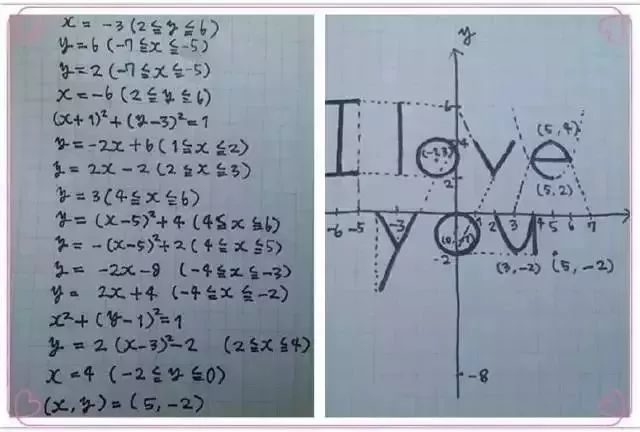 x = -3 (2 ≦ y ≦ 6)
y = 6 (-7 ≦ x ≦ -5)
y = 2 (-7 ≦ x ≦ -5)
x = -6 (2 ≦ y ≦ 6)
(x+1)² + (y-3)² = 1
y = -2x + 6 (1 ≦ x ≦ 2)
y = 2x - 2 (2 ≦ x ≦ 3)
y = 3 (4 ≦ x ≦ 6)
y = (x-5)² + 4 (4 ≦ x ≦ 6)
y = -(x-5)² + 2 (4 ≦ x ≦ 5)
y = -2x - 8 (-4 ≦ x ≦ -3)
y = 2x + 4 (-4 ≦ x ≦ -2)
x² + (y-1)² = 1
y = 2 (x-3)² - 2 (2 ≦ x ≦ 4)
x = 4 (-2 ≦ y ≦ 0)
(x, y) = (5, -2)
y
6
I love
4
(5, 4)
2
(5, 2)
-6 -5 -3 1 2 3 4 5 6 7
you
-2
(3, -2) (5, -2)
-8